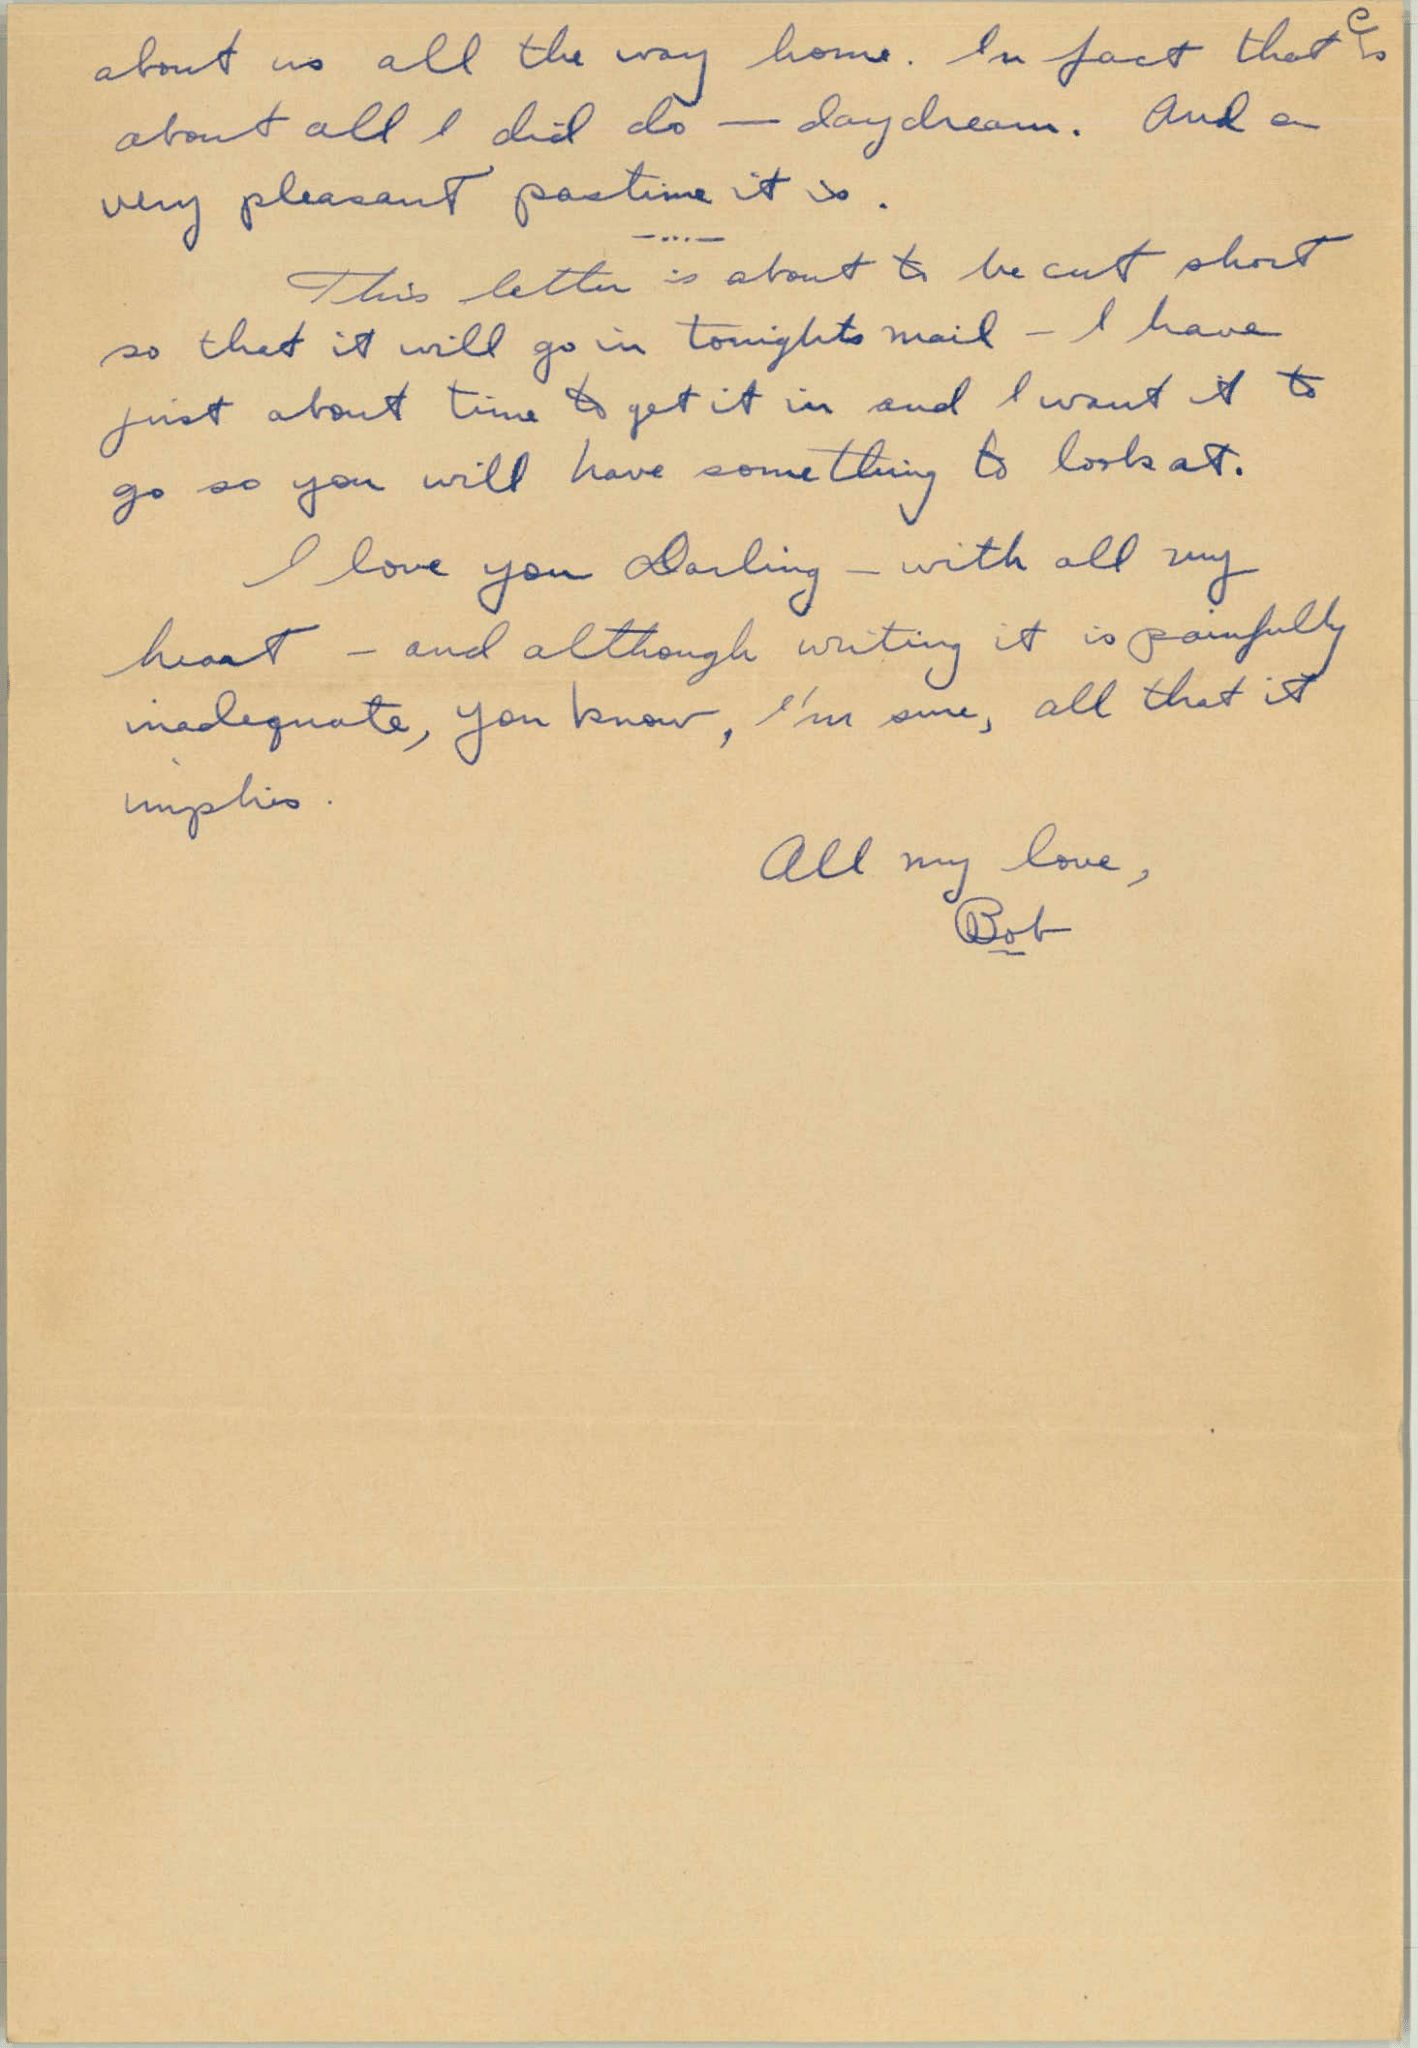 about us all the way home. In fact that is
about all I did do — daydream. And a
very pleasant pastime it is.
—...—
This letter is about to be cut short
so that it will go in tonights mail – I have
just about time to get it in and I want it to
go so you will have something to look at.
I love you Darling – with all my
heart – and although writing it is painfully
inadequate, you know, I'm sure, all that it
implies.
All my love,
Bob